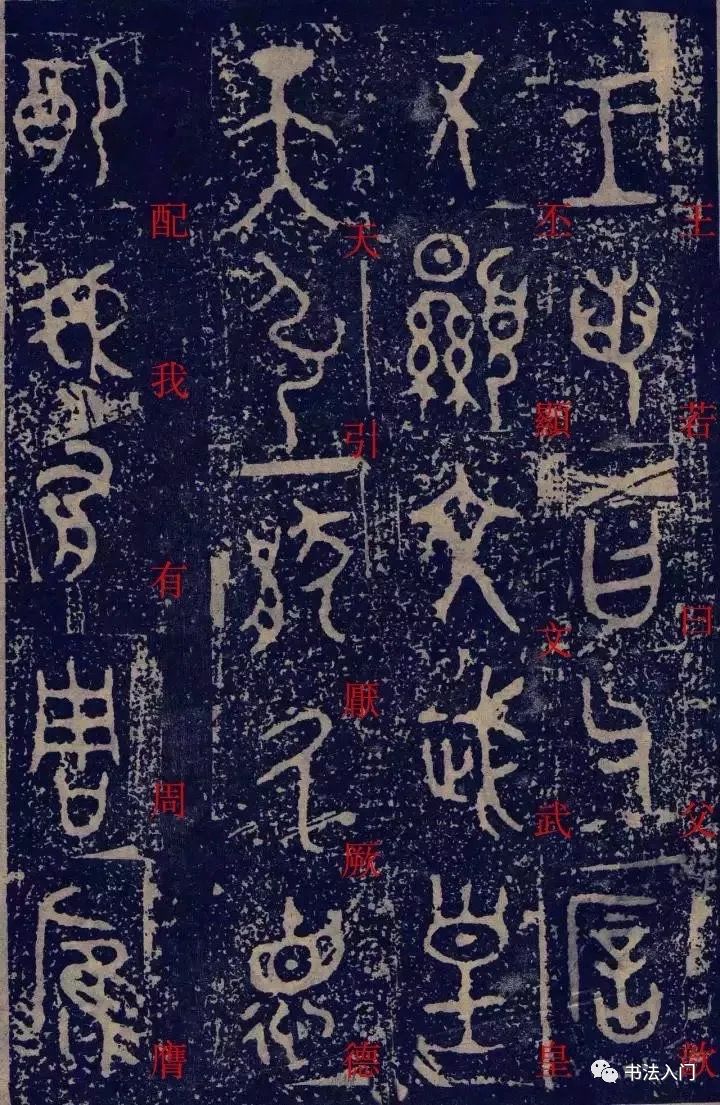 王若曰父
丕顯文武皇
天引厭厥德
配我有周膺
书法入门